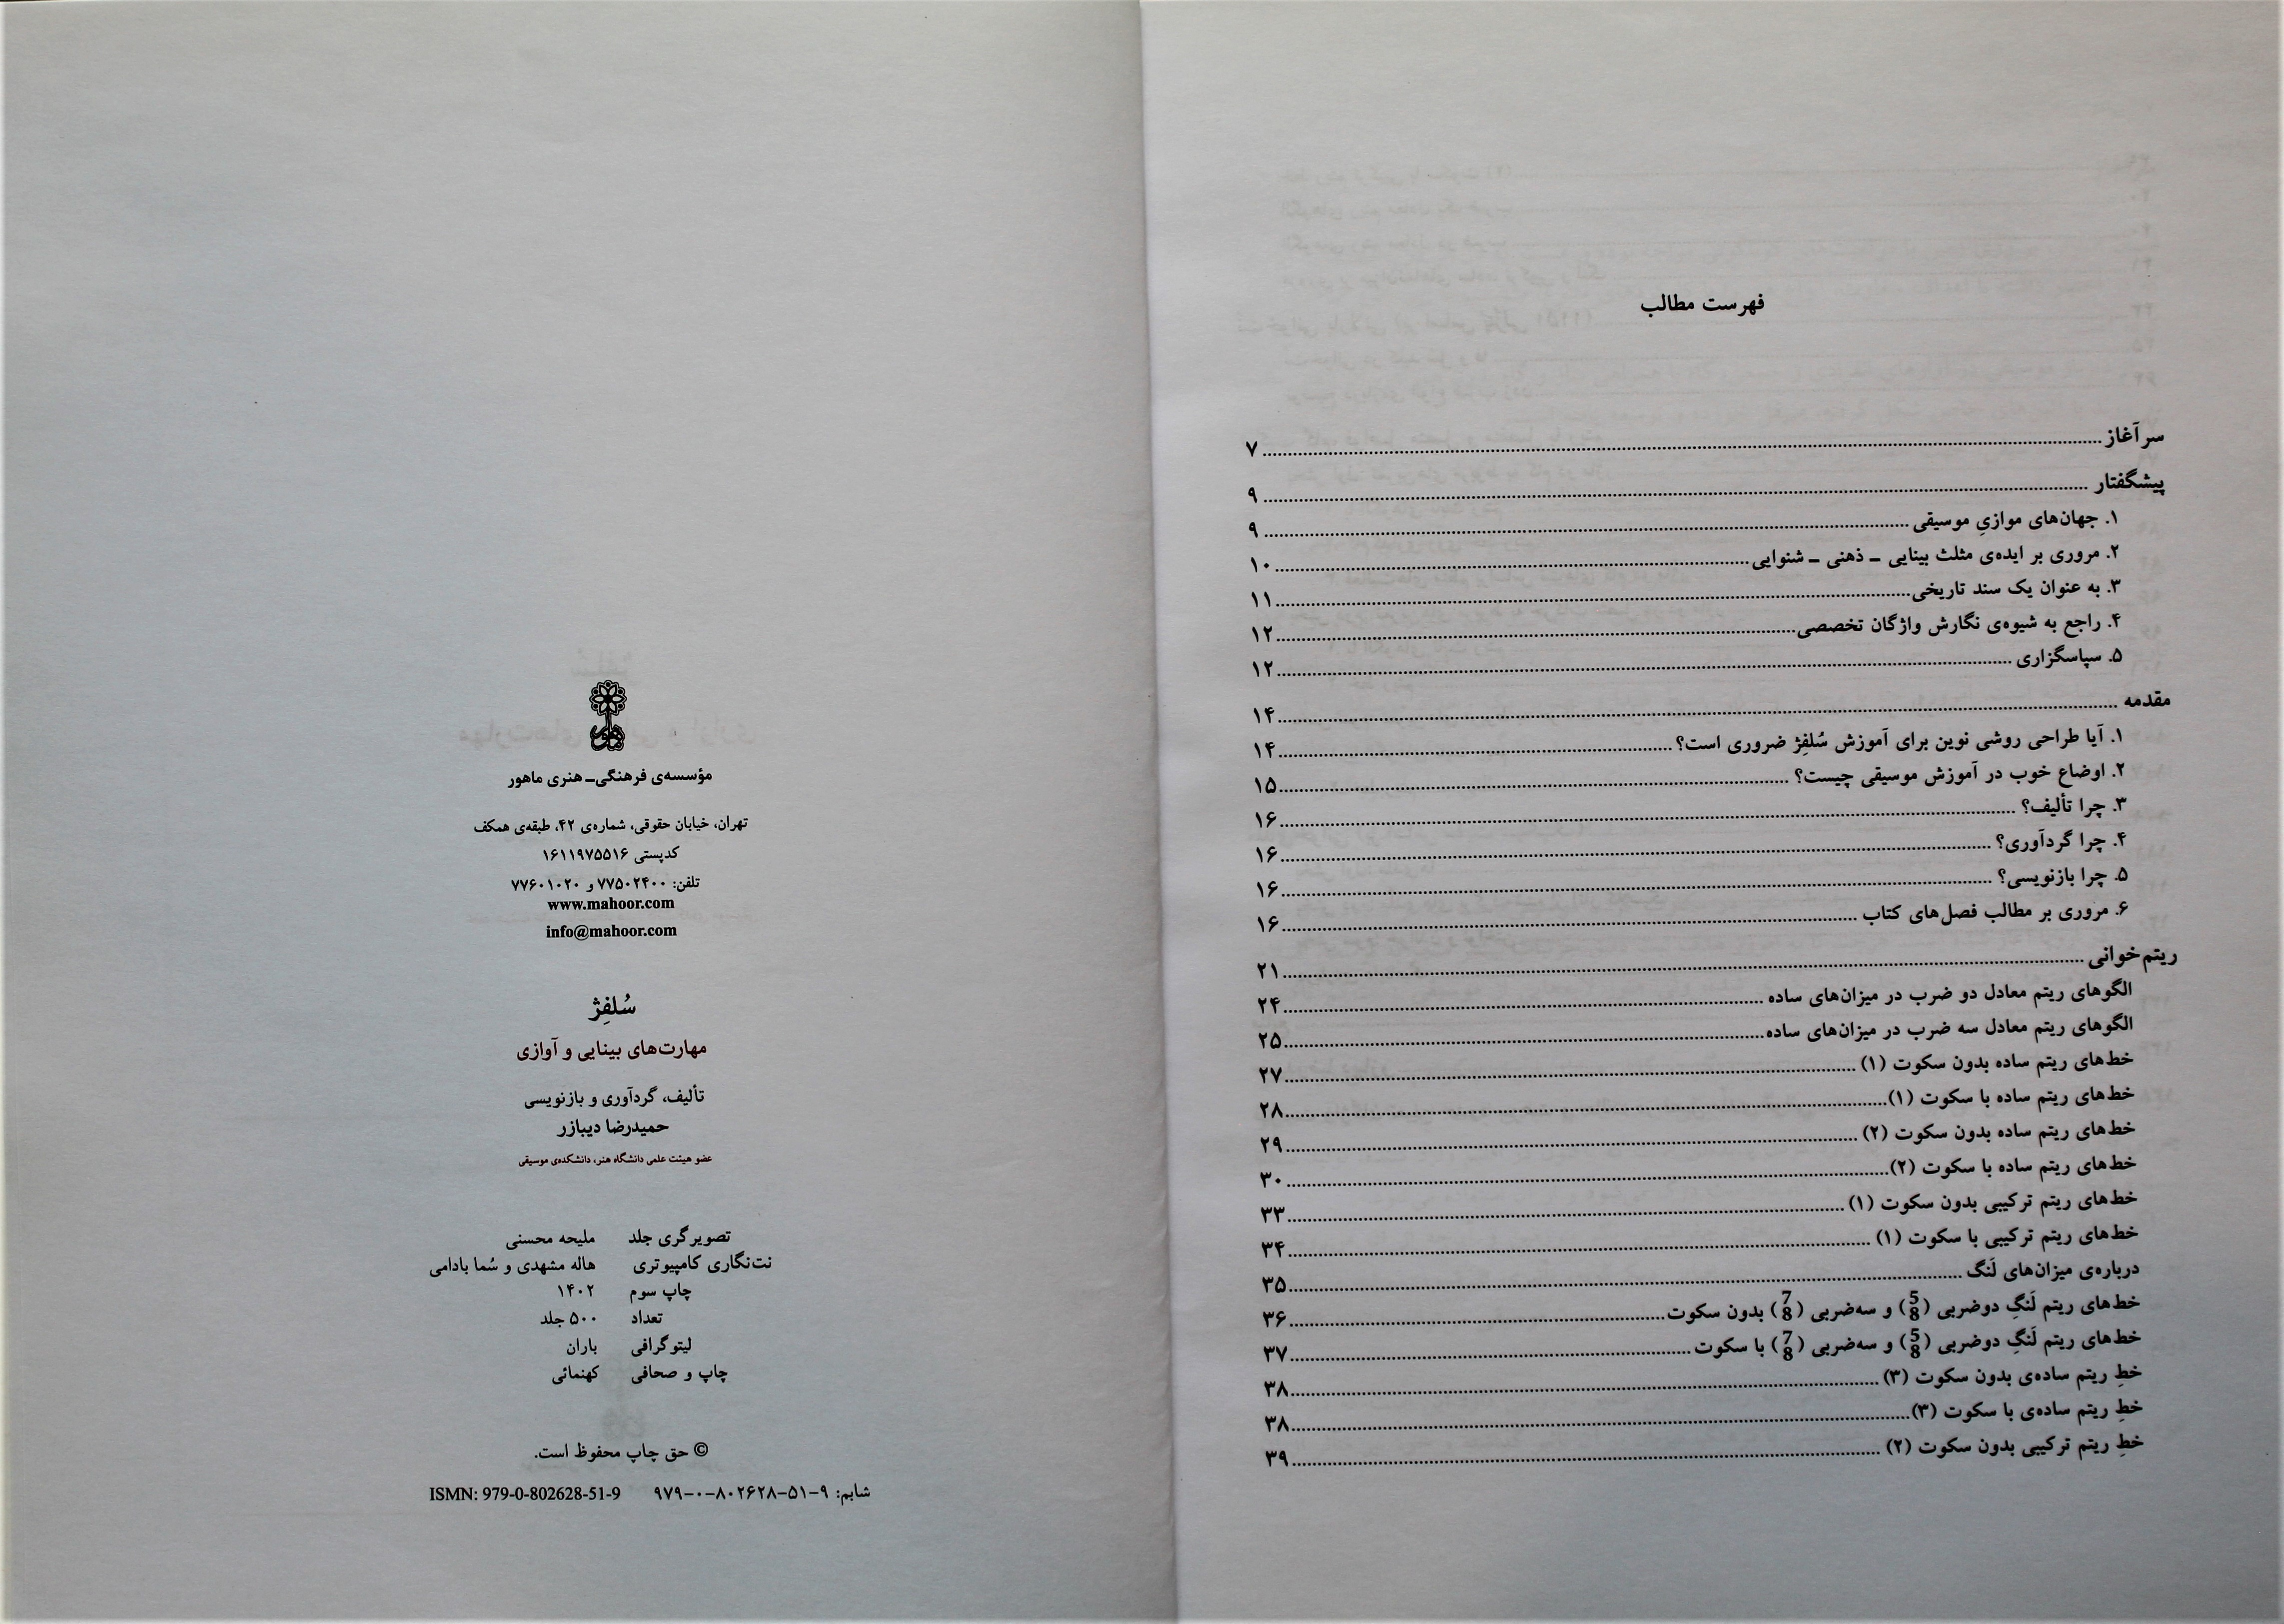 مؤسسه‌ی فرهنگی‌ـ هنری ماهور
تهران، خیابان حقوقی، شماره‌ی ۴۲، طبقه‌ی همکف
کدپستی ۱۶۱۱۹۷۵۵۱۶
تلفن: ۷۷۵۰۲۴۰۰ و ۷۷۶۰۱۰۲۰
www.mahoor.com
info@mahoor.com
سُلفِژ
مهارت‌های بینایی و آوازی
تألیف، گردآوری و بازنویسی
حمیدرضا دیبازر
عضو هیئت علمی دانشگاه هنر، دانشکده‌ی موسیقی
تصویرگری جلد ملیحه محسنی
نت‌نگاری کامپیوتری هاله مشهدی و سُما بادامی
چاپ سوم ۱۴۰۲
تعداد ۵۰۰ جلد
لیتوگرافی باران
چاپ و صحافی کهنمائی
© حق چاپ محفوظ است.
شابم: ۹-۵۱-۸۰۲۶۲۸-۰-۹۷۹ ISMN: 979-0-802628-51-9
فهرست مطالب
سرآغاز ........ ۷
پیشگفتار ........ ۹
۱. جهان‌های موازیِ موسیقی ........ ۹
۲. مروری بر ایده‌ی مثلث بینایی ـ ذهنی ـ شنوایی ........ ۱۰
۳. به عنوان یک سند تاریخی ........ ۱۱
۴. راجع به شیوه‌ی نگارش واژگان تخصصی ........ ۱۲
۵. سپاسگزاری ........ ۱۲
مقدمه ........ ۱۴
۱. آیا طراحی روشی نوین برای آموزش سُلفِژ ضروری است؟ ........ ۱۴
۲. اوضاع خوب در آموزش موسیقی چیست؟ ........ ۱۵
۳. چرا تألیف؟ ........ ۱۶
۴. چرا گردآوری؟ ........ ۱۶
۵. چرا بازنویسی؟ ........ ۱۶
۶. مروری بر مطالب فصل‌های کتاب ........ ۱۶
ریتم‌خوانی ........ ۲۱
الگوهای ریتم معادل دو ضرب در میزان‌های ساده ........ ۲۴
الگوهای ریتم معادل سه ضرب در میزان‌های ساده ........ ۲۵
خط‌های ریتم ساده بدون سکوت (۱) ........ ۲۷
خط‌های ریتم ساده با سکوت (۱) ........ ۲۸
خط‌های ریتم ساده بدون سکوت (۲) ........ ۲۹
خط‌های ریتم ساده با سکوت (۲) ........ ۳۰
خط‌های ریتم ترکیبی بدون سکوت (۱) ........ ۳۳
خط‌های ریتم ترکیبی با سکوت (۱) ........ ۳۴
درباره‌ی میزان‌های لَنگ ........ ۳۵
خط‌های ریتم لَنگِ دوضربی (5/8) و سه‌ضربی (7/8) بدون سکوت ........ ۳۶
خط‌های ریتم لَنگِ دوضربی (5/8) و سه‌ضربی (7/8) با سکوت ........ ۳۷
خطِ ریتم ساده‌ی بدون سکوت (۳) ........ ۳۸
خطِ ریتم ساده‌ی با سکوت (۳) ........ ۳۸
خطِ ریتم ترکیبی بدون سکوت (۲) ........ ۳۹